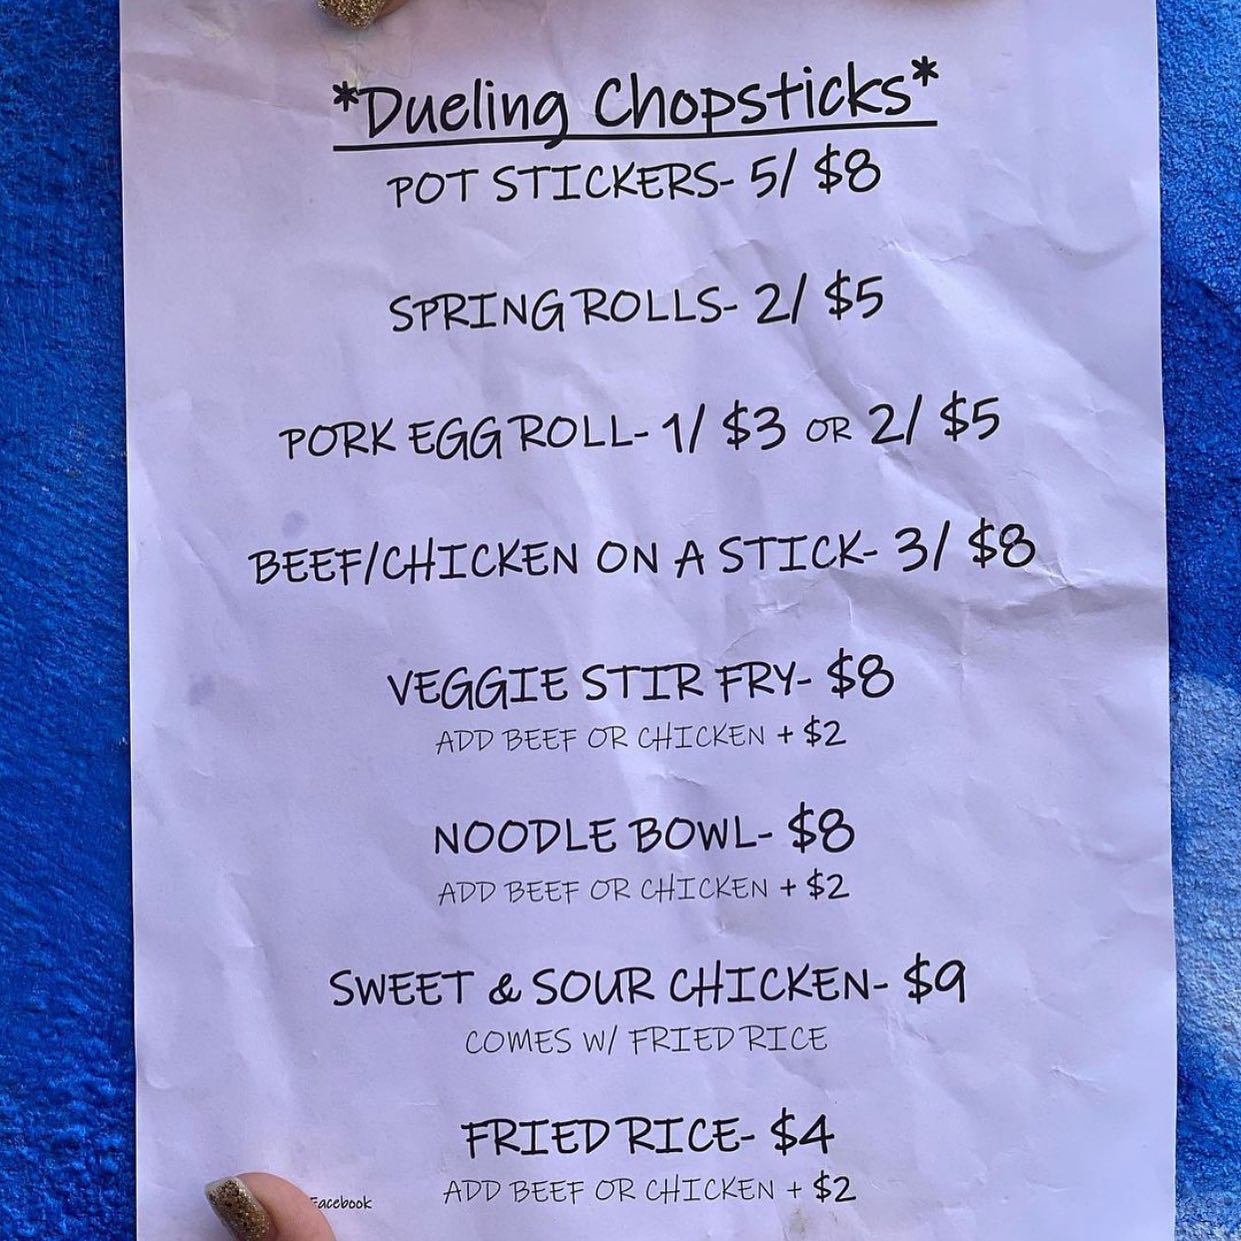 *Dueling Chopsticks*
POT STICKERS- 5/ $8
SPRING ROLLS- 2/ $5
PORK EGG ROLL- 1/ $3 OR 2/ $5
BEEF/CHICKEN ON A STICK- 3/ $8
VEGGIE STIR FRY- $8
ADD BEEF OR CHICKEN + $2
NOODLE BOWL- $8
ADD BEEF OR CHICKEN + $2
SWEET & SOUR CHICKEN- $9
COMES W/ FRIED RICE
FRIED RICE- $4
ADD BEEF OR CHICKEN + $2
Facebook